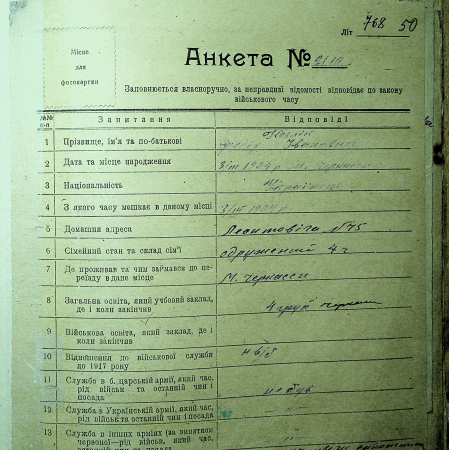 Літ 768 50
Місце
для
фотокартки
Анкета №
Заповнюється власноручно, за неправдиві відомості відповідає по закону
військового часу
№№
п-п
Запитання
Відповіді
1 Прізвище, ім'я та по-батькові
Іванович
2 Дата та місце народження
3/III 1904 р. м. Черкаси
3 Національність
Українець
4 З якого часу мешкає в даному місці
3/III 1904 р.
5 Домашня адреса
№ 75
6 Сімейний стан та склад сім'ї
одружений 4 ч
7 Де проживав та чим займався до пе-
реїзду в дане місце
М. Черкасси
8 Загальна освіта, який учбовий заклад,
де і коли закінчив
4 груп
9 Військова освіта, який заклад, де і
коли закінчив
10 Відношення по військової служби
до 1917 року
н в/б
11 Служба в б. царській армії, який час,
рід військ та останній чин і
посада
не був
12 Служба в Українській армії, який час,
рід військ та останній чин і посада
13 Служба в інших арміях (за винятком
червоної—рід військ, який час,